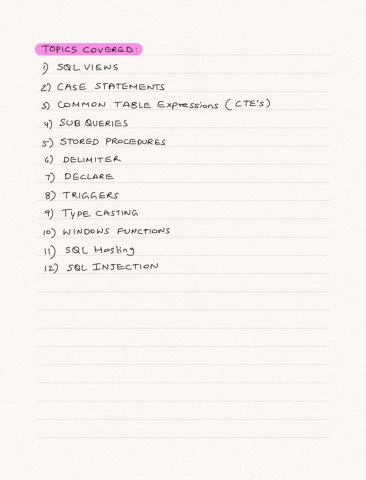 TOPICS COVERED:
1) SQL VIEWS
2) CASE STATEMENTS
3) COMMON TABLE Expressions (CTE'S)
4) SUB QUERIES
5) STORED PROCEDURES
6) DELIMITER
7) DECLARE
8) TRIGGERS
9) TYPE CASTING
10) WINDOWS FUNCTIONS
11) SQL Hosting
12) SQL INJECTION